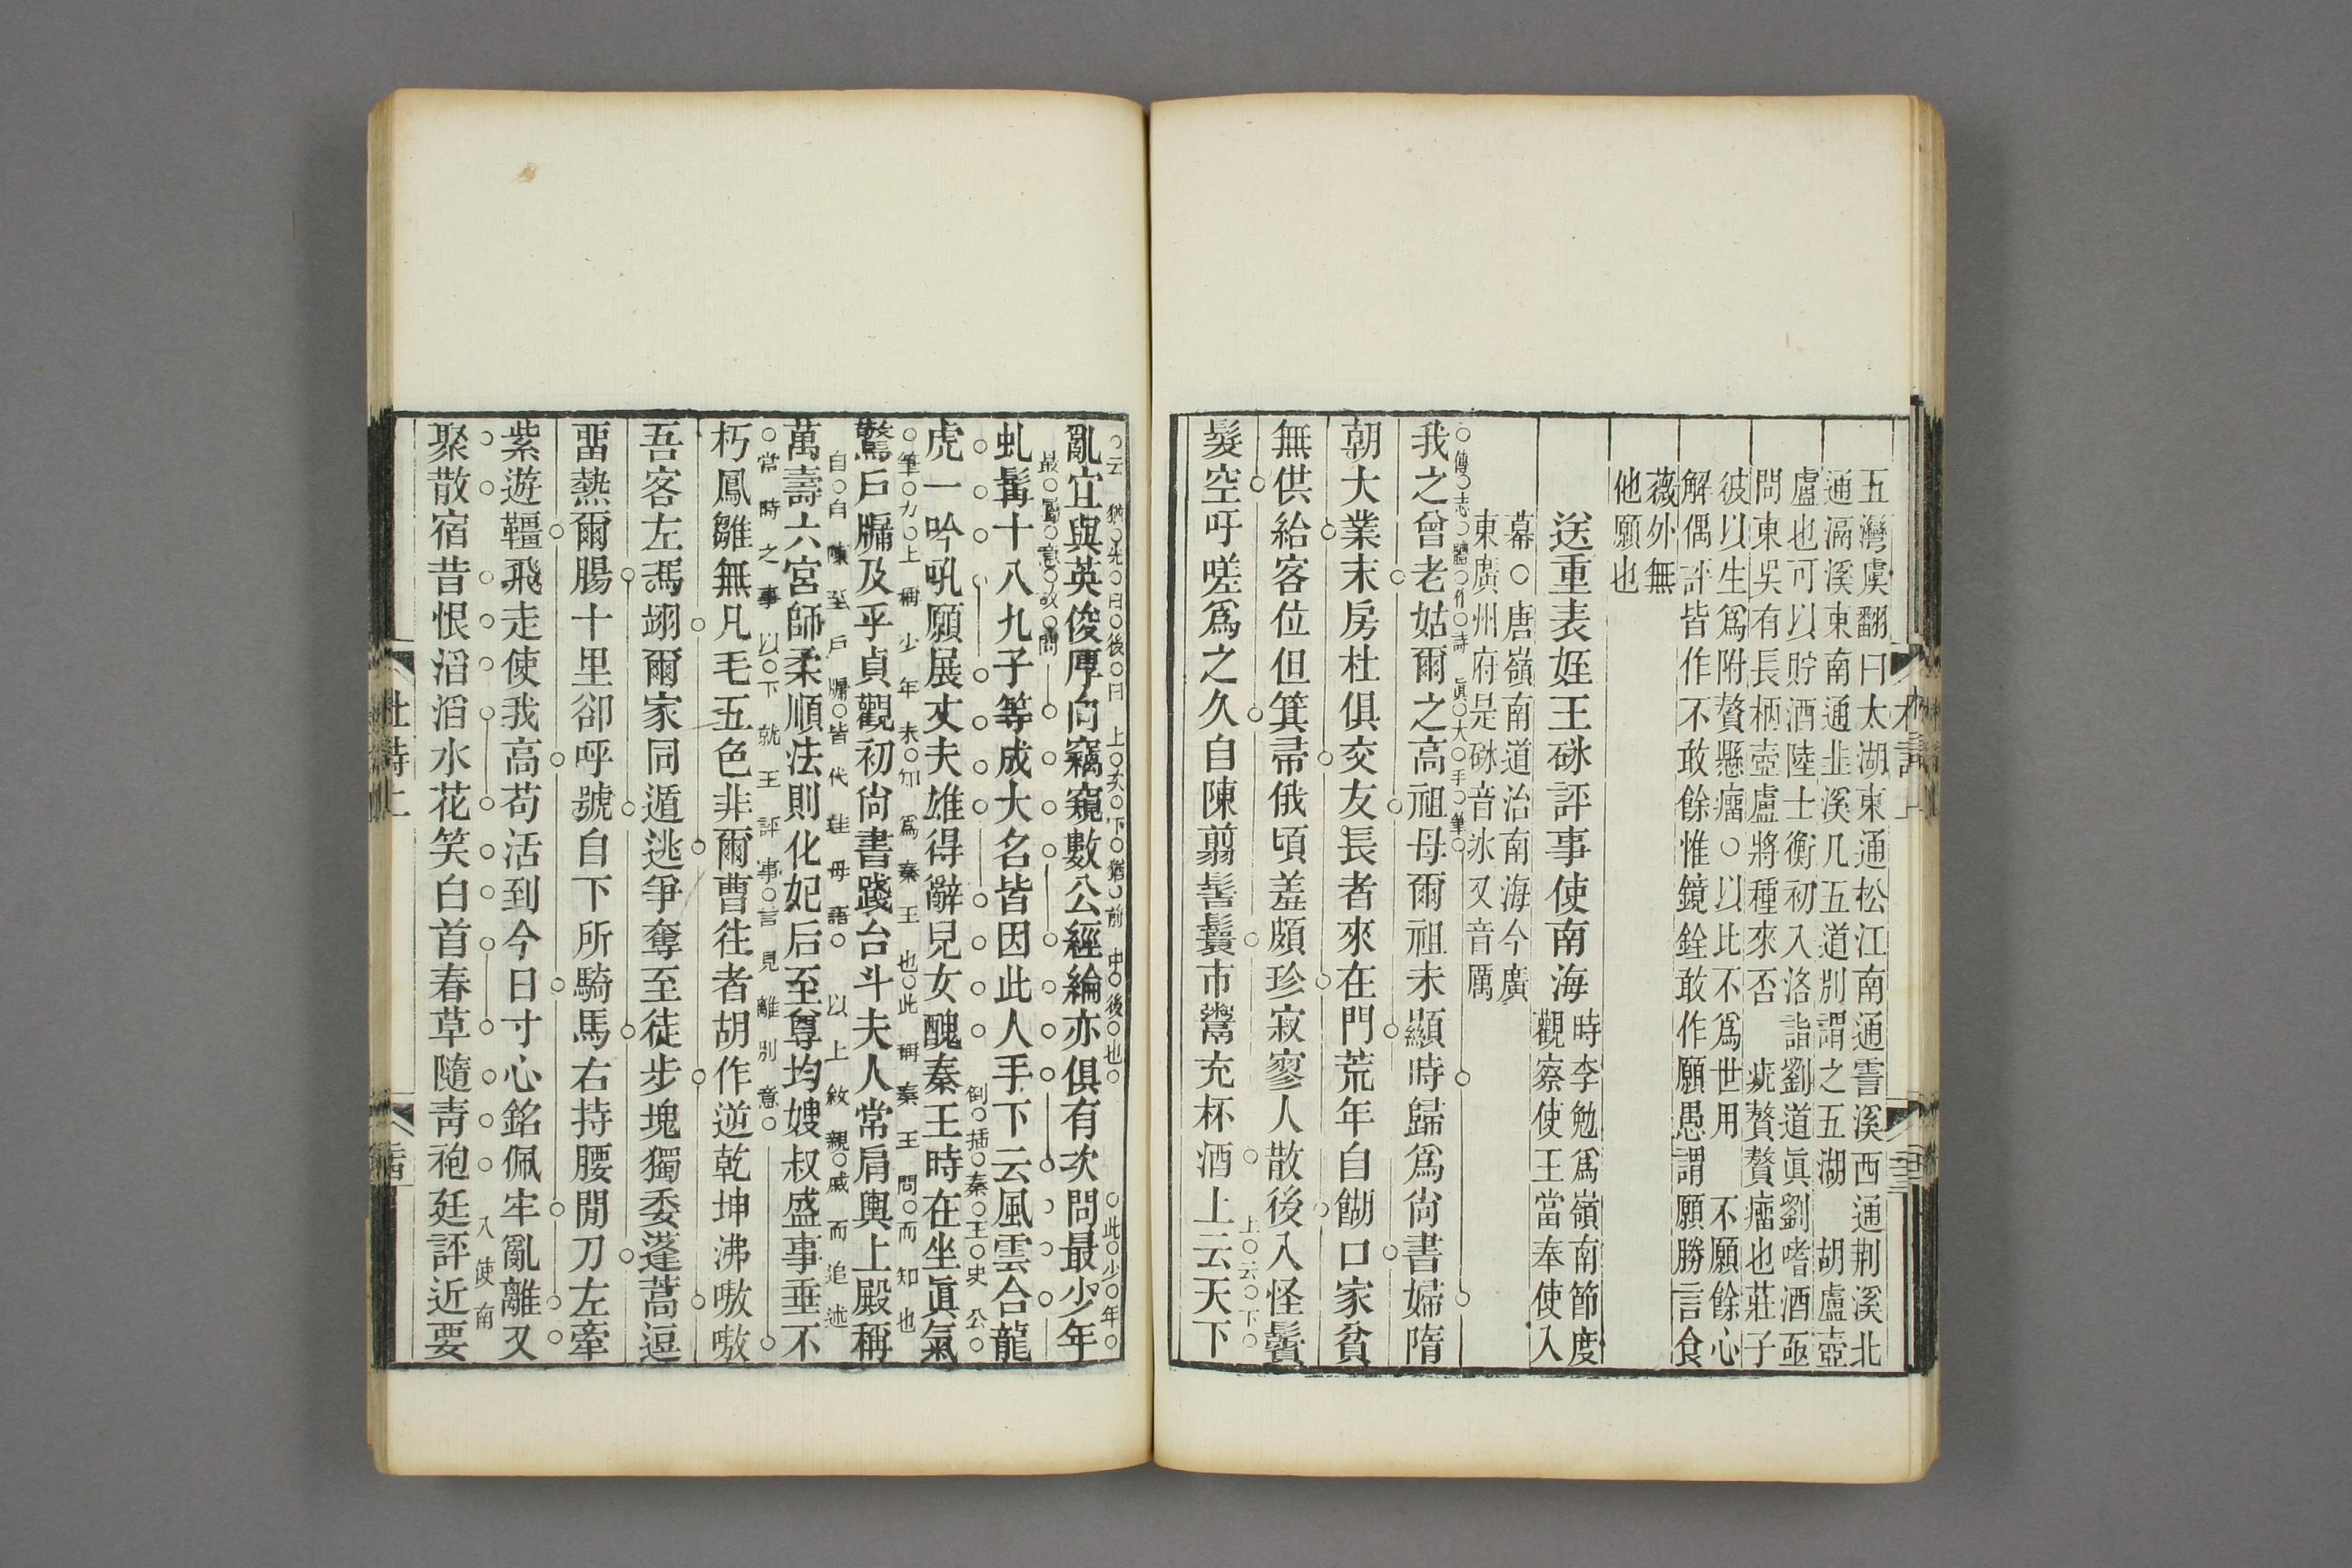 五灣虞翻曰太湖東通松江南通霅溪西通荆溪北
通滆溪東南通韭溪凡五道別謂之五湖　胡盧壺
盧也可以貯酒陸士衡初入洛詣劉道眞劉嗜酒亟
問東吳有長柄壺盧將種來否　疣贅贅瘤也莊子
彼以生爲附贅懸瘤○以比不爲世用　不願餘心
解偶評皆作不敢餘惟鏡銓敢作願愚謂願勝言食
薇外無
他願也
送重表姪王砅評事使南海
時李勉爲嶺南節度
觀察使王當奉使入
幕○唐嶺南道治南海今廣
東廣州府是砅音氷又音厲
傳志體作詩　眞大手筆
我之曾老姑爾之高祖母爾祖未顯時歸爲尙書婦隋
朝大業末房杜俱交友長者來在門荒年自餬口家貧
無供給客位但箕帚俄頃羞頗珍寂寥人散後入怪鬢
上云下
髮空吁嗟爲之久自陳翦髻鬟市鬻充杯酒上云天下
云　猶先曰後曰　上次下猶前　中後也　此少年
亂宜與英俊厚向竊窺數公經綸亦俱有次問最少年
最屬意故問
虬髯十八九子等成大名皆因此人手下云風雲合龍
倒插秦王史公
虎一吟吼願展丈夫雄得辭兒女醜秦王時在坐眞氣
筆力上稱少年未知爲秦王也此稱秦王問而知也
驚戶牖及乎貞觀初尙書踐台斗夫人常肩輿上殿稱
自自陳至戶牖皆代姓母語　以上敘親戚而追述
萬壽六宮師柔順法則化妃后至尊均嫂叔盛事垂不
當時之事以下就王評事言見離別意
朽鳳雛無凡毛五色非爾曹往者胡作逆乾坤沸嗷嗷
吾客左馮翊爾家同遁逃爭奪至徒步塊獨委蓬蒿逗
畱熱爾腸十里卻呼號自下所騎馬右持腰閒刀左牽
紫遊韁飛走使我高苟活到今日寸心銘佩牢亂離又
入使南
聚散宿昔恨滔滔水花笑白首春草隨靑袍廷評近要
杜詩上